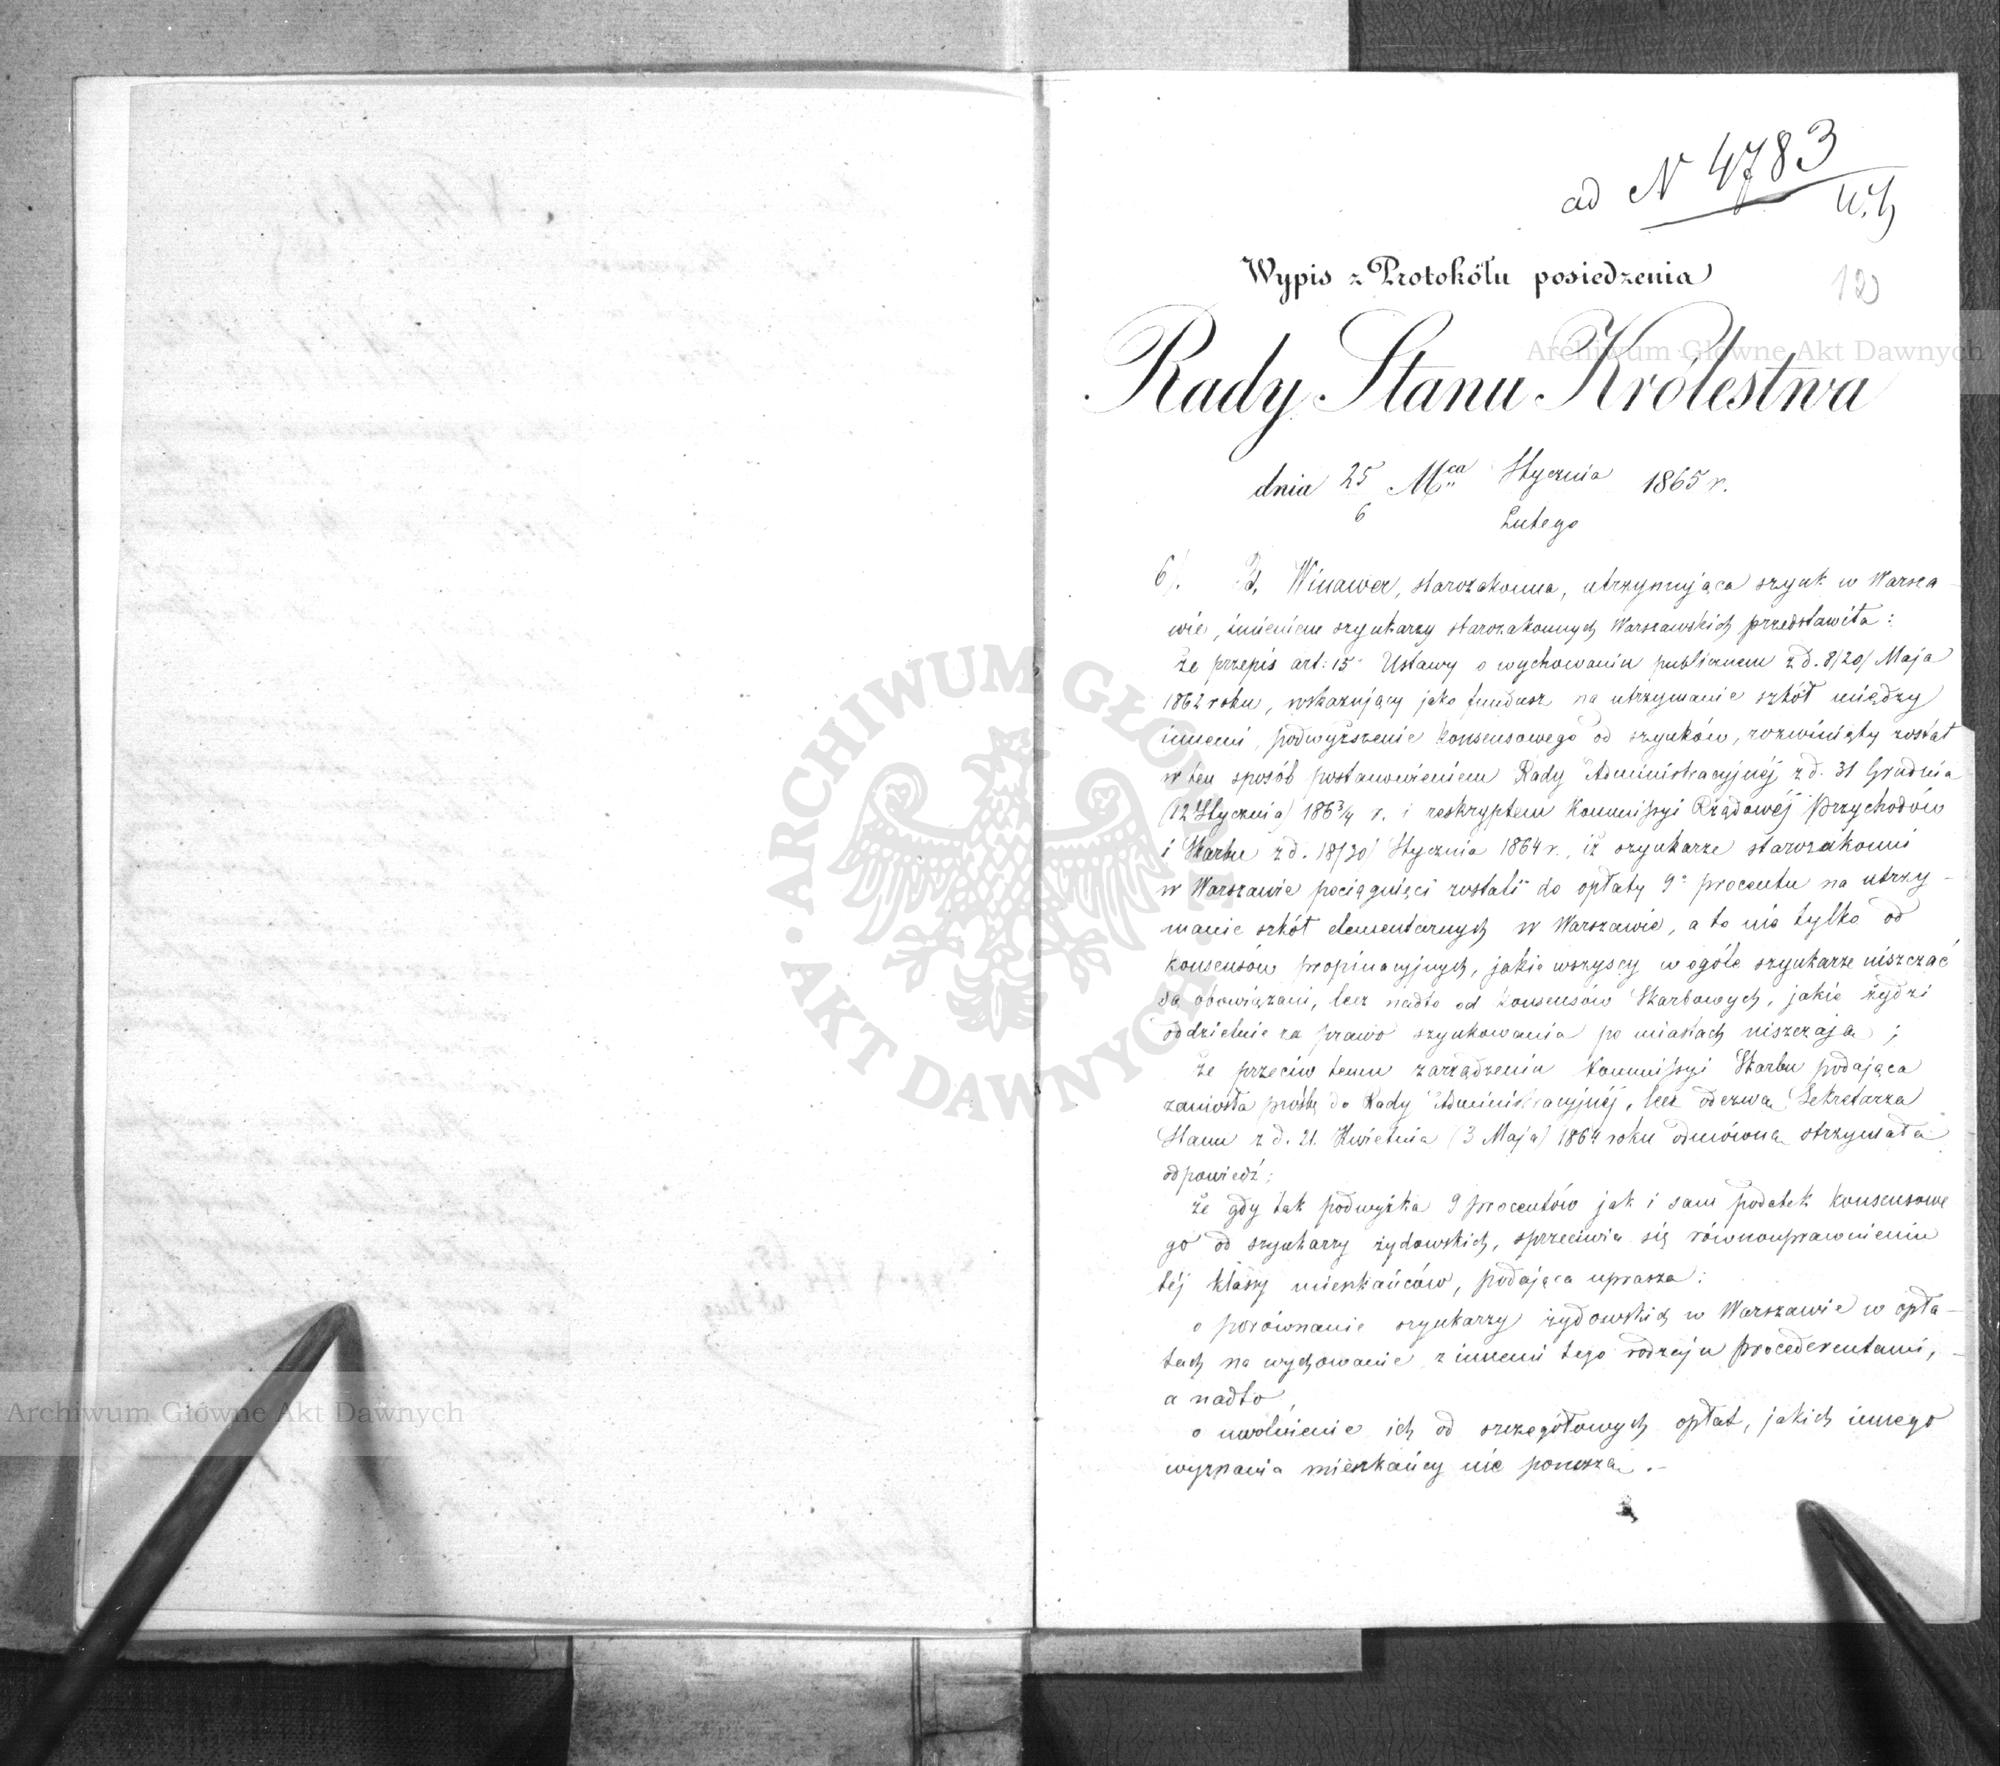 ad N 4783
12
Wypis z Protokółu posiedzenia
Rady Stanu Królestwa
dnia 25 Mca Stycznia 1865 r.
6 Lutego
6). Winawer, starozakonna, utrzymująca szynk w Warsza-
wie, imieniem szynkarzy starozakonnych Warszawskich przedstawiła:
że przepis art: 15 Ustawy o wychowaniu publicznem z d. 8/20/ Maja
1862 roku, wskazujący jako fundusz na utrzymanie szkół między
innemi, podwyższenie konsensowego od szynków, rozwinięty został
w ten sposób postanowieniem Rady Administracyjnéj z d. 31 Grudnia
(12 Stycznia) 1863/4 r. i reskryptem Kommissyi Rządowéj Przychodów
i Skarbu z d. 18/30/ Stycznia 1864 r., iż szynkarze starozakonni
w Warszawie pociągnięci zostali do opłaty 9º procentu na utrzy-
manie szkół elementarnych w Warszawie, a to nie tylko od
konsensów propinacyjnych, jakie wszyscy w ogóle szynkarze uiszczać
są obowiązani, lecz nadto od konsensów Skarbowych, jakie żydzi
oddzielnie za prawo szynkowania po miastach uiszczają;
że przeciw temu zarządzeniu Kommissyi Skarbu podająca
zaniosła prośbę do Rady Administracyjnéj, lecz odezwą Sekretarza
Stanu z d. 21 Kwietnia (3 Maja) 1864 roku odmówną otrzymała
odpowiedź;
że gdy tak podwyżka 9 procentów jak i sam podatek konsensowe
go od szynkarzy żydowskich, sprzeciwia się równouprawnieniu
téj klassy mieszkańców, podająca uprasza:
o porównanie szynkarzy żydowskich w Warszawie w opła-
tach na wychowanie z innemi tego rodzaju procederentami,
a nadto,
o uwolnienie ich od szczegółowych opłat, jakich innego
wyznania mieszkańcy nie ponoszą.-
Archiwum Główne Akt Dawnych
Archiwum Główne Akt Dawnych
ARCHIWUM GŁÓWNE AKT DAWNYCH